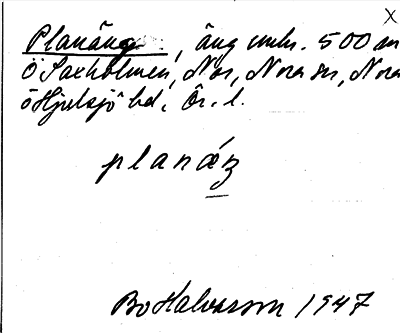 X
Planäng, äng omkr. 500 m
Ö Saxholmen, Nor, Nora sn, Nora
o Hjulsjö bd, Ör. l.
planǽŋ
Bo Halvarson 1947